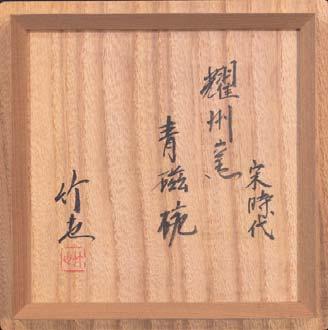 宋時代
耀州窯
青磁碗
竹也